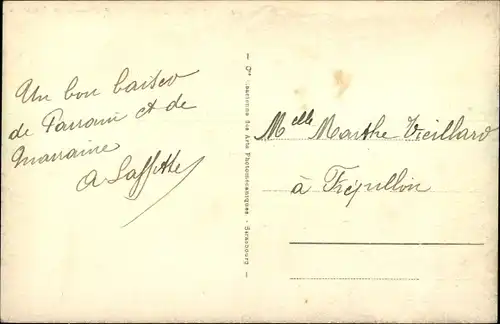 Un bon baiser
de Parrain et de
marraine
A Laffitte
Cie Alsacienne des Arts Photomécaniques - Strasbourg
Melle Marthe Vieillard
à Frépillon